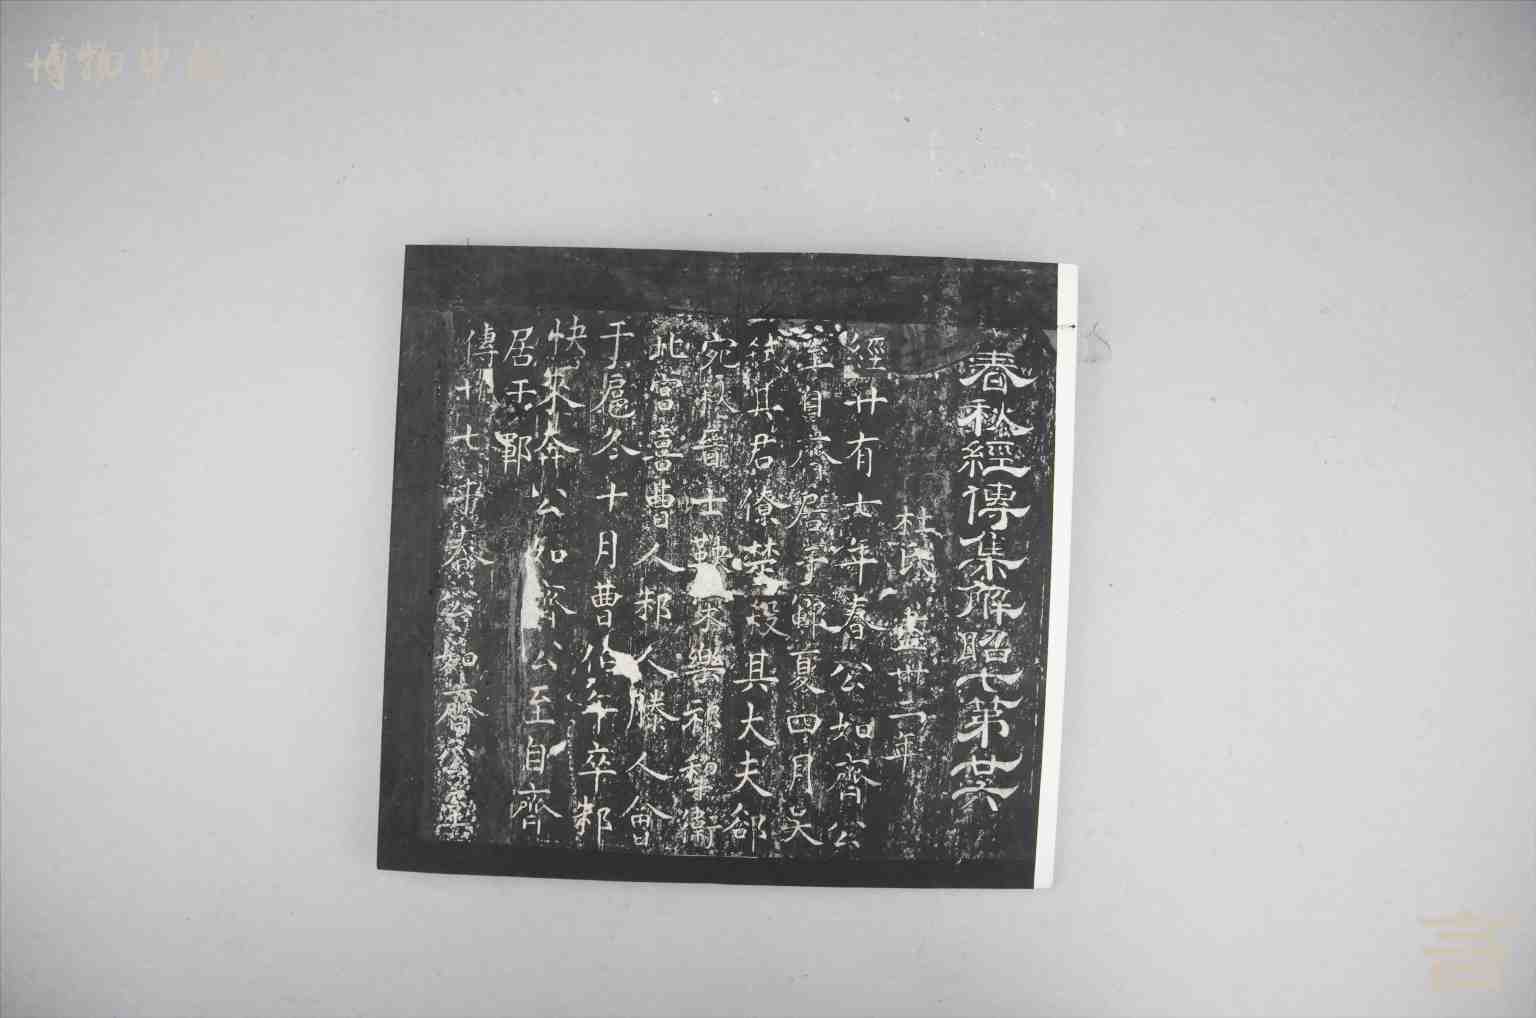 春秋經傳集解昭七第廿六
杜氏 盡卅二年
經廿有七年春公如齊公
至自齊居于鄆夏四月吳
弑其君僚楚殺其大夫郤
宛秋晉士鞅宋樂祁犂衛
北宮喜曹人邾人滕人會
于扈冬十月曹伯午卒邾
快來奔公如齊公至自齊
居于鄆
傳廿七年春公如齊公至
博物中國